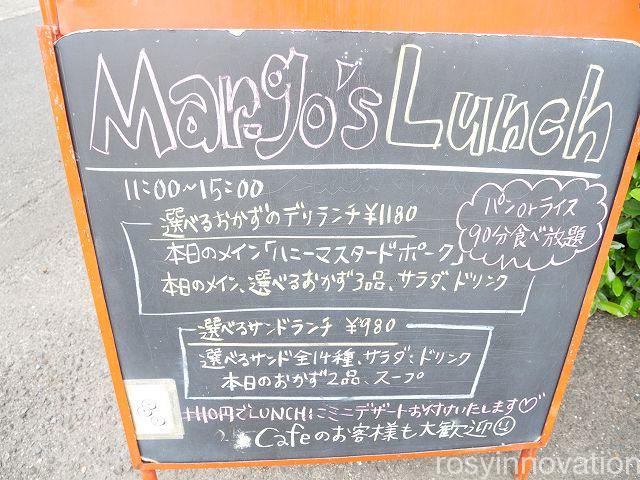 Margo's Lunch
11:00~15:00
選べるおかずのデリランチ ¥1180
本日のメイン「ハニーマスタードポーク」
本日のメイン、選べるおかず3品、サラダ、ドリンク
パンorライス
90分食べ放題
選べるサンドランチ ¥980
選べるサンド全14種、サラダ、ドリンク
本日のおかず2品、スープ
+110円でLUNCHにミニデザートお付けいたします♡
Cafeのお客様も大歓迎
rosyinnovation